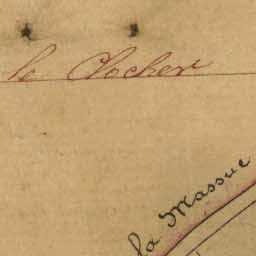 le Clocher
la Massue